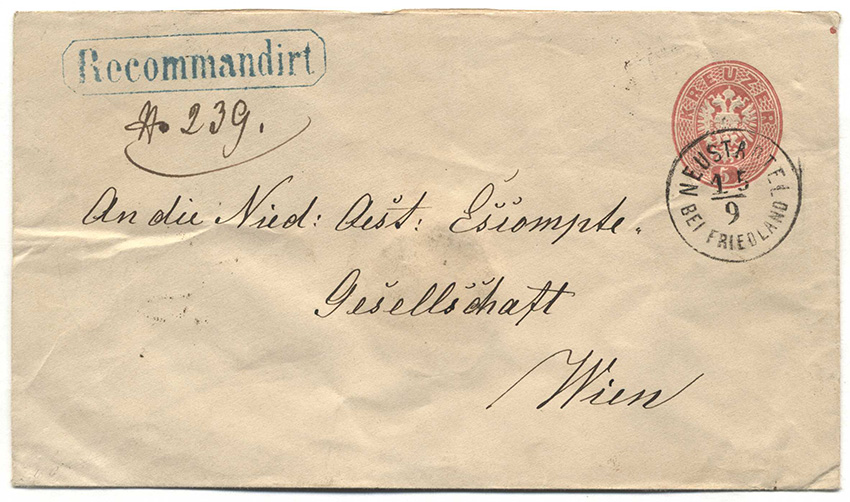 Recommandirt
№ 239.
KREUZER
5
NEUSTADTEL
15
9
BEI FRIEDLAND
An die Nied: Oest: Escompte-
Gesellschaft
Wien